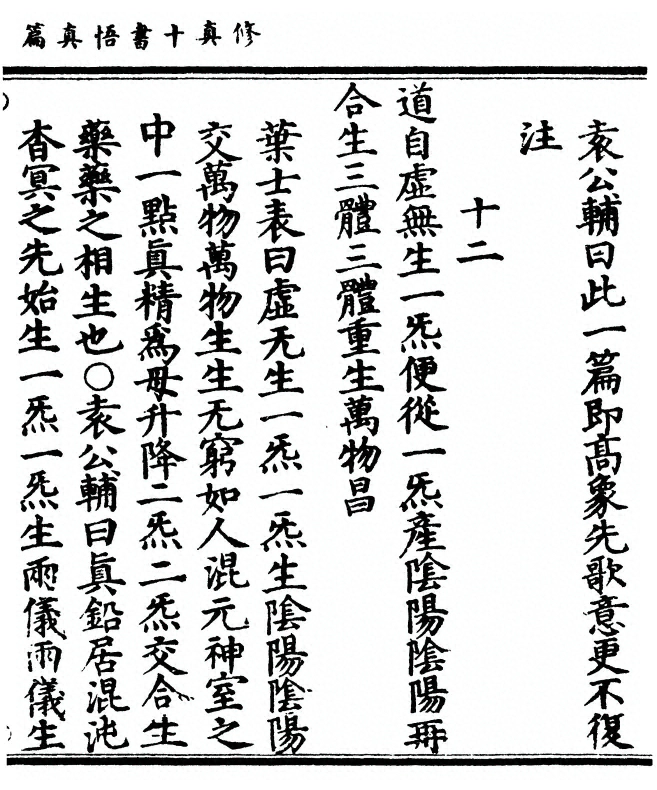 修真十書悟真篇
袁公輔曰此一篇即高象先歌意更不復
注
十二
道自虛無生一炁便從一炁產陰陽陰陽再
合生三體三體重生萬物昌
葉士表曰虛无生一炁一炁生陰陽陰陽
交萬物萬物生生无窮如人混元神室之
中一點眞精為母升降二炁二炁交合生
藥藥之相生也○袁公輔曰眞鉛居混沌
杳冥之先始生一炁一炁生兩儀兩儀生